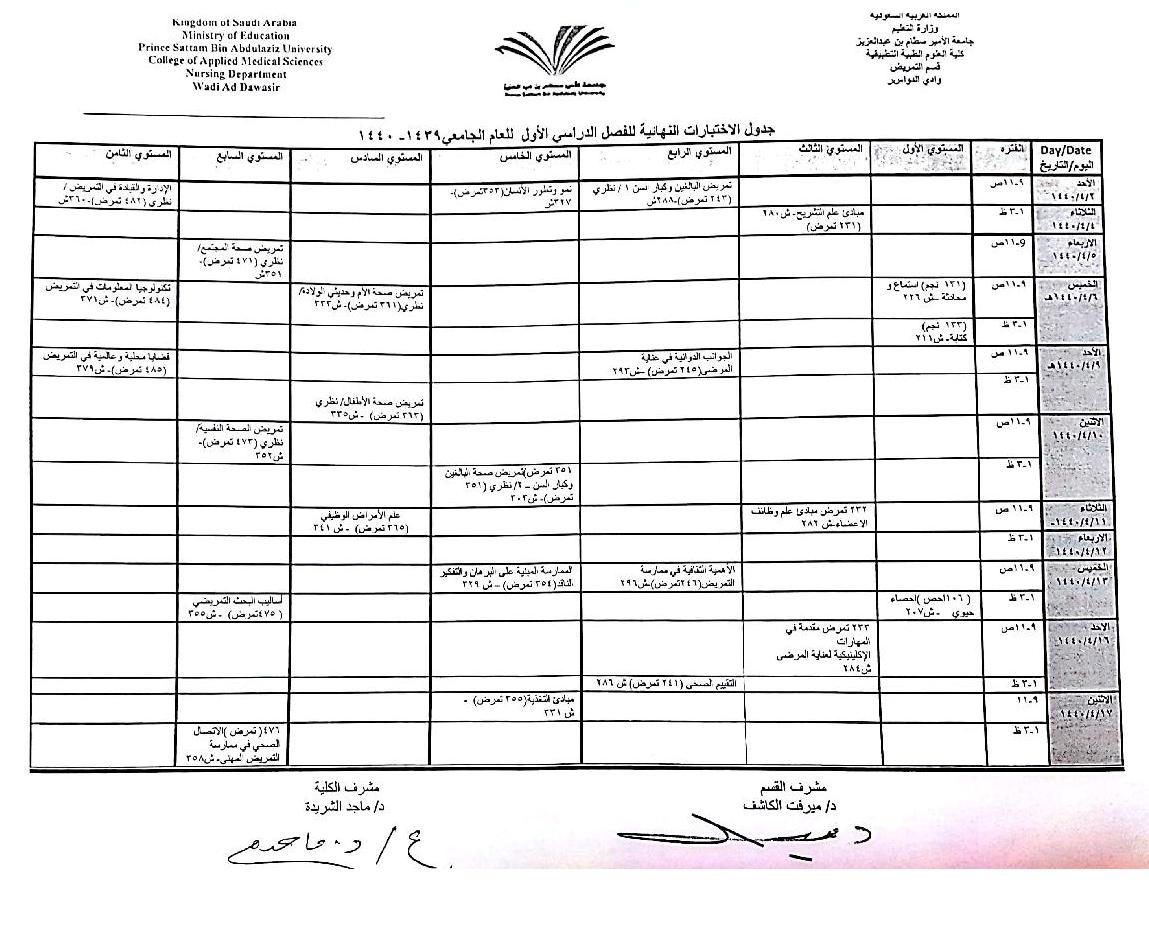 Kingdom of Saudi Arabia
Ministry of Education
Prince Sattam Bin Abdulaziz University
College of Applied Medical Sciences
Nursing Department
Wadi Ad Dawasir
المملكة العربية السعودية
وزارة التعليم
جامعة الأمير سطام بن عبدالعزيز
كلية العلوم الطبية التطبيقية
قسم التمريض
وادي الدواسر
جدول الاختبارات النهائية للفصل الدراسي الأول للعام الجامعي١٤٣٩- ١٤٤٠
Day/Date الفتره المستوي الأول المستوي الثالث المستوي الرابع المستوي الخامس المستوي السادس المستوي السابع المستوي الثامن
اليوم/التاريخ
الأحد ٩-١١ص تمريض البالغين وكبار السن ١ / نظري نمو وتطور الأنسان(٣٥٢تمرض)- الإدارة والقيادة في التمريض /
١٤٤٠/٤/٢ ٢٤٣) تمرض)-٢٨٨ش ٣٢٧ش نظري (٤٨٢ تمرض)-٣٦٠ش
الثلاثاء ١-٣ ظ مبادئ علم التشريح- ش٢٨٠
١٤٤٠/٤/٤ (٢٣١ تمرض)
الاربعاء ٩-١١ص تمريض صحة المجتمع/
١٤٤٠/٤/٥ نظري (٤٧١ تمرض)-
٣٥١ش
الخميس ٩-١١ص (١٣١ نجم) استماع و تمريض صحة الأم وحديثي الولادة/ تكنولوجيا المعلومات في التمريض
١٤٤٠/٤/٦هـ محادثة –ش ٢٢٦ نظري(٣٦١ تمرض)- ش٣٣٣ (٤٨٤ تمرض)- ش٣٧١
١-٣ ظ (١٣٣ نجم)
كتابة- ش٢١١
الأحد ٩-١١ ص الجوانب الدوائية في عناية قضايا محلية وعالمية في التمريض
١٤٤٠/٤/٩هـ المرضى(٢٤٥ تمرض) –ش٢٩٣ (٤٨٥ تمرض)- ش٣٧٩
١-٣ ظ
تمريض صحة الأطفال/ نظري
(٣٦٣ تمرض) - ش٣٣٥
الاثنين ٩-١١ص تمريض الصحة النفسية/
١٤٤٠/٤/١٠ نظري (٤٧٣ تمرض)-
ش٣٥٢
١-٣ ظ ٣٥١ تمرض)تمريض صحة البالغين
وكبار السن – ٢/ نظري (٣٥١
تمرض)- ش٣٠٢
الثلاثاء ٩-١١ ص ٢٣٢ تمرض مبادئ علم وظائف علم الأمراض الوظيفي
١٤٤٠/٤/١١- الاعضاء-ش ٢٨٢ (٣٦٥ تمرض) - ش٣٤١
الاربعاء ١-٣ ظ
١٤٤٠/٤/١٢
الخميس ٩-١١ص الأهمية الثقافية في ممارسة الممارسة المبنية على البرهان والتفكير
١٤٤٠/٤/١٣ التمريض(٢٤٦تمرض)-ش٢٩٦ الناقد(٣٥٤ تمرض) – ش ٣٢٩
١-٣ ظ ( ١٠٦احص )احصاء أساليب البحث التمريضي
حيوي - ش٢٠٧ (٤٧٥تمرض) - ش٣٥٥
الاحد ٩-١١ص ٢٣٣ تمرض مقدمة في
١٤٤٠/٤/١٦- المهارات
الإكلينيكية لعناية المرضى
ش٢٨٤
١-٣ ظ التقييم الصحي (٢٤١ تمرض) ش ٢٨٦
الاثنين ٩-١١ مبادئ التغذية(٣٥٥ تمرض) -
١٤٤٠/٤/١٧ ش ٣٣١
١-٣ ظ ٤٧٦( تمرض )الاتصال
الصحي في ممارسة
التمريض المهني- ش٣٥٨
مشرف القسم مشرف الكلية
د/ ميرفت الكاشف د/ ماجد الشريدة